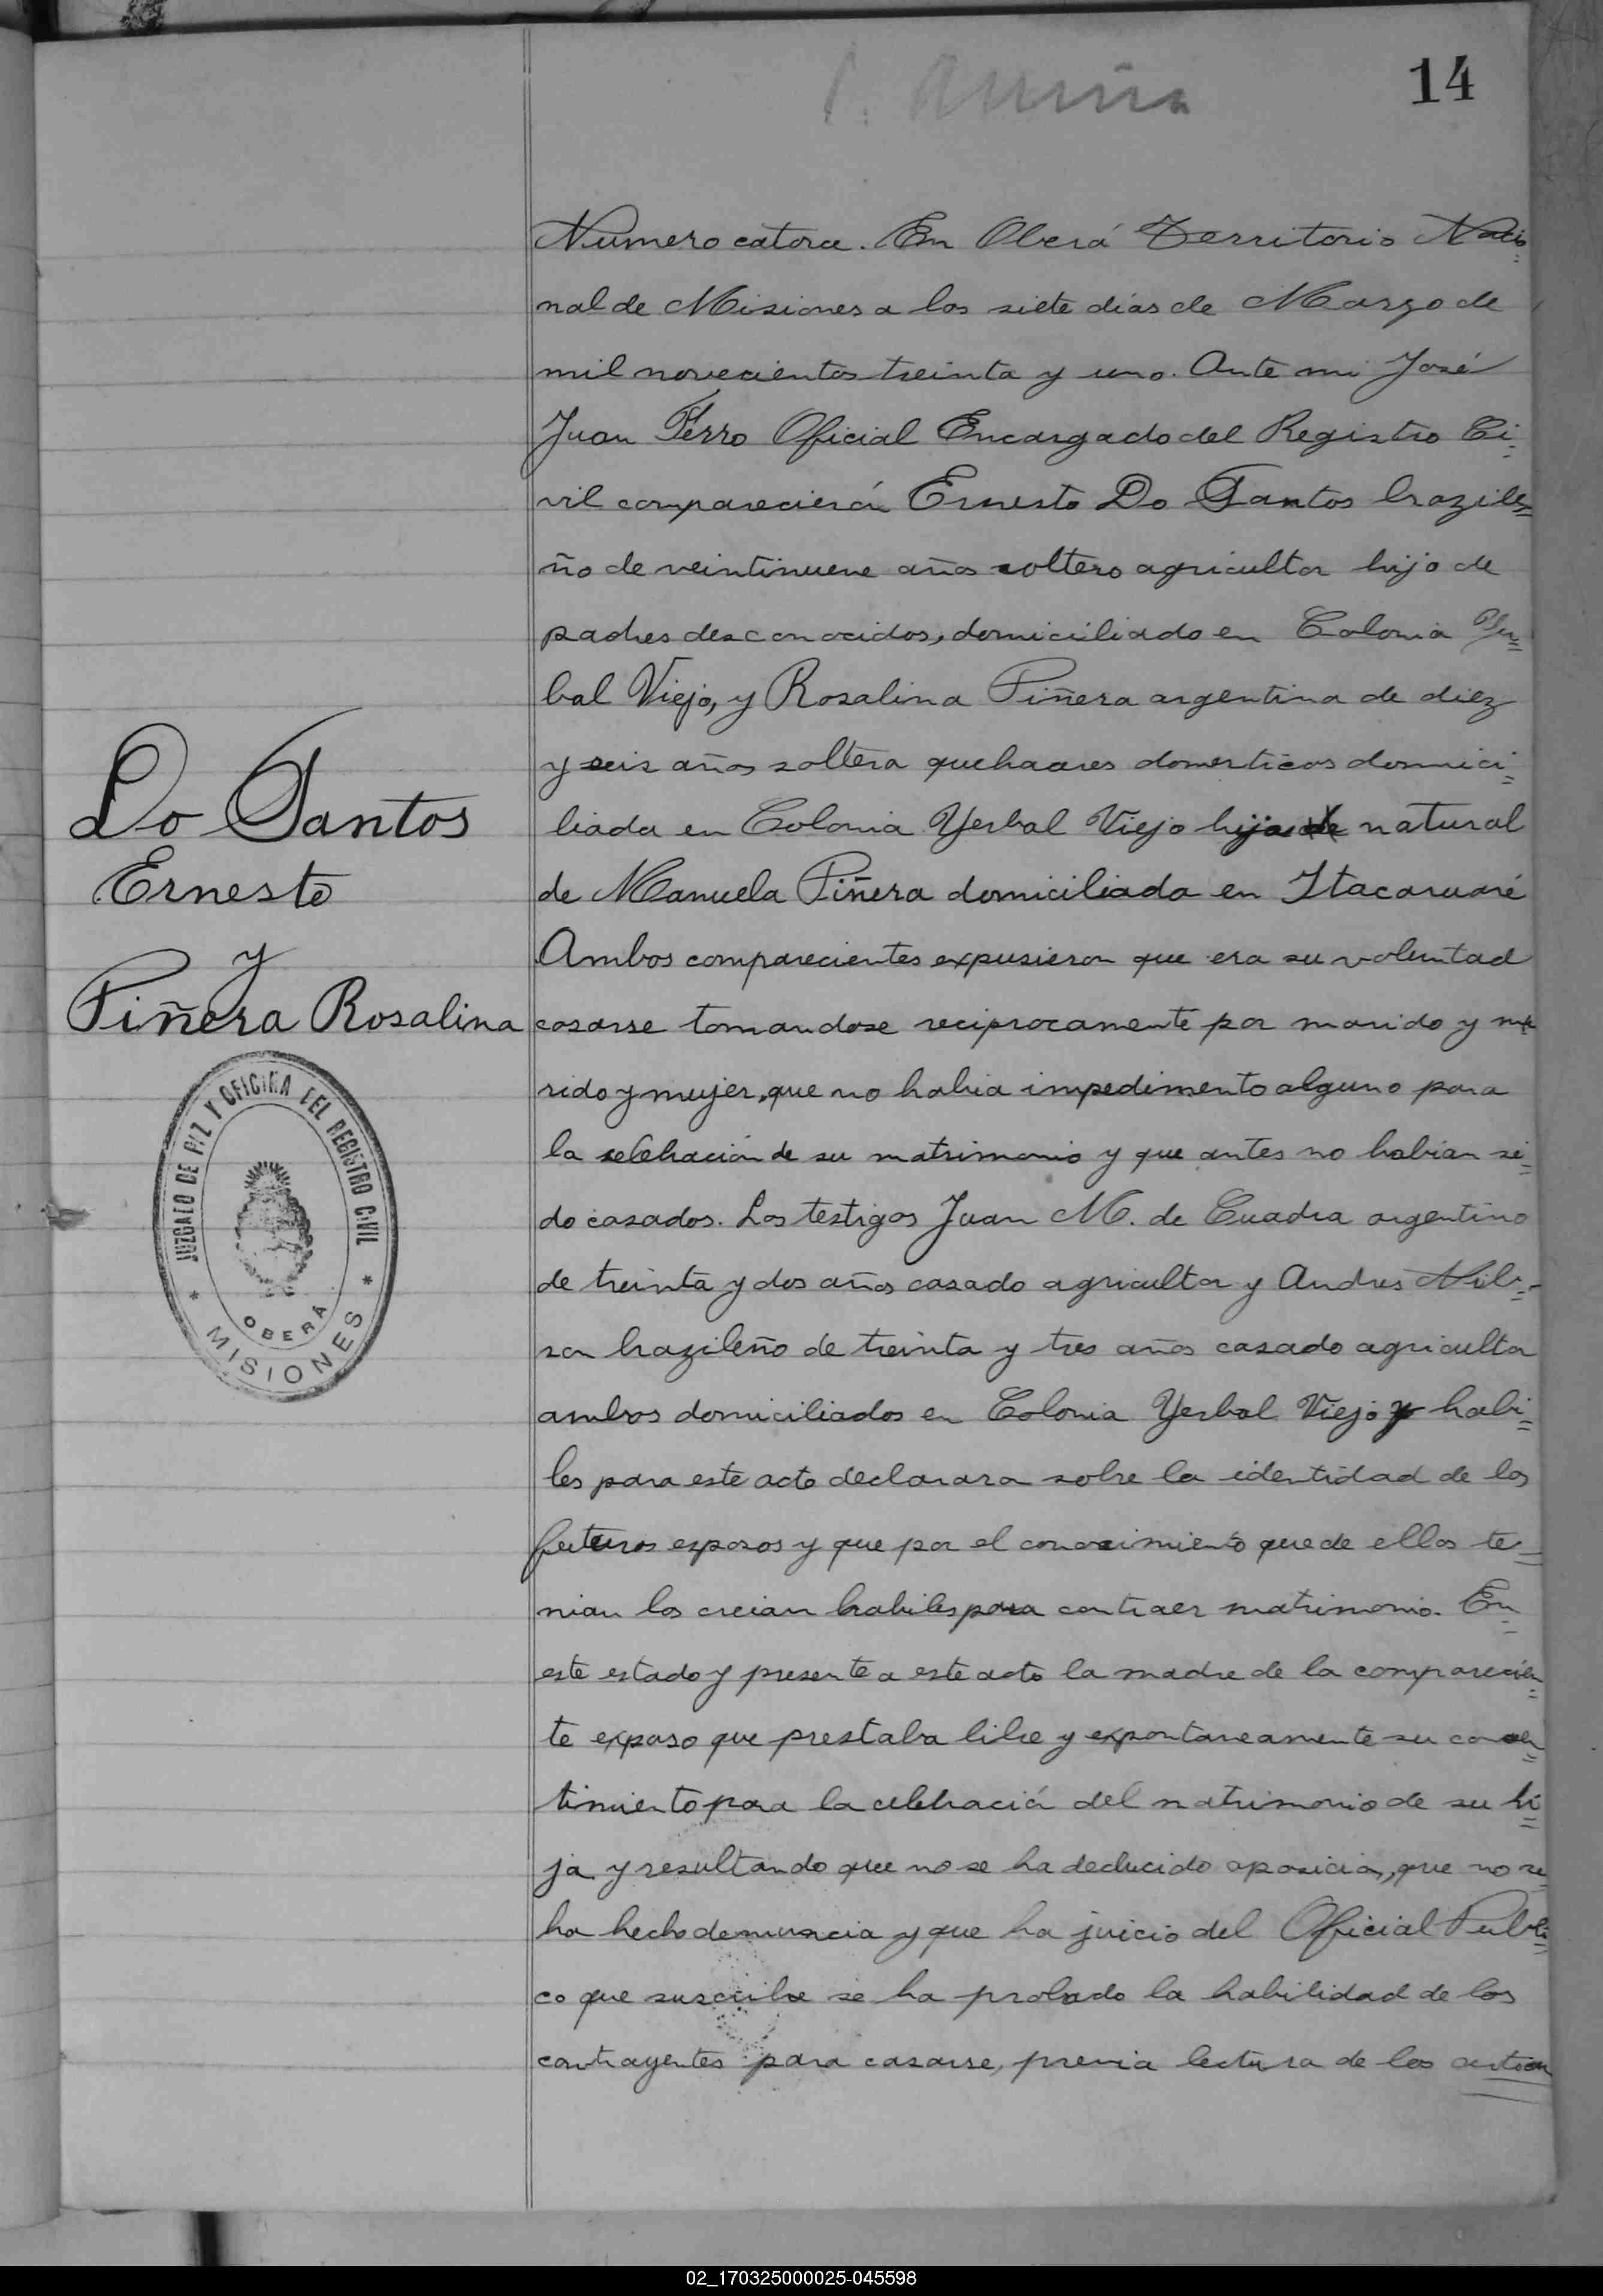 14
Numero catorce. En Oberá Territorio Nacio-
nal de Misiones a los siete días de Marzo de
mil novecientos treinta y uno. Ante mi José
Juan Ferro Oficial Encargado del Registro Ci-
vil comparecierón Ernesto Do Santos brazile-
ño de veintinueve años soltero agricultor hijo de
padres desconocidos, domiciliado en Colonia Yer-
bal Viejo, y Rosalina Piñera argentina de diez
y seis años soltera quehaceres domesticos domici-
liada en Colonia Yerbal Viejo hija de natural
de Manuela Piñera domiciliada en Itacaruaré
Ambos comparecientes expusieron que era su voluntad
casarse tomandose reciprocamente por marido y ma
rido y mujer, que no habia impedimento alguno para
la celebración de su matrimonio y que antes no habian si-
do casados. Los testigos Juan M. de Cuadra argentino
de treinta y dos años casado agricultor y Andres Nil-
son brazileño de treinta y tres años casado agricultor
ambos domiciliados en Colonia Yerbal Viejo y habi-
les para este acto declararon sobre la identidad de los
futuros esposos y que por el conocimiento que de ellos te-
nian los creian habiles para contraer matrimonio. En
este estado y presente a este acto la madre de la comparecien-
te expuso que prestaba libre y expontareamente su consen-
timiento para la celebración del matrimonio de su hi-
ja y resultando que no se ha deducido oposicion, que no se
ha hecho denuncia y que ha juicio del Oficial Publi-
co que suscribe se ha probado la habilidad de los
contrayentes para casarse, previa lectura de los
Do Santos
Ernesto
y
Piñera Rosalina
JUZGADO DE PAZ Y OFICINA DEL REGISTRO CIVIL
* OBERÁ *
MISIONES
02_170325000025-045598